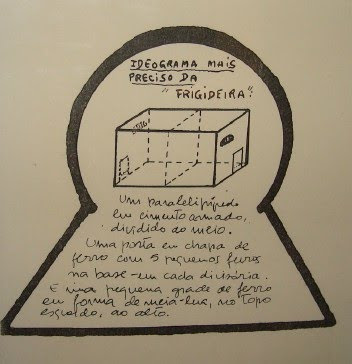 IDEOGRAMA MAIS
PRECISO DA
"FRIGIDEIRA":
Um paralelipípedo
em cimento armado,
dividido ao meio.
Uma porta em chapa de
ferro com 5 pequenos furos
na base - em cada divisória.
E uma pequena grade de ferro
em forma de meia-lua, no topo
ao alto.